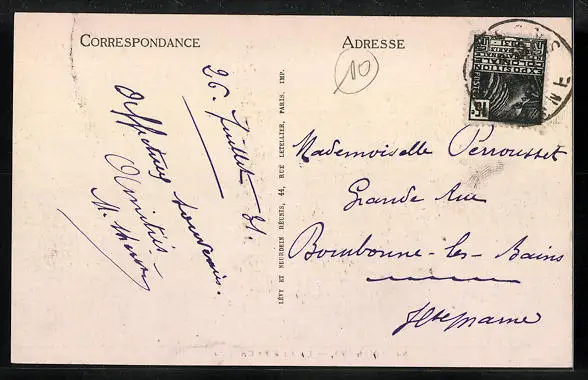 CORRESPONDANCE
ADRESSE
10
26. Juillet 31.
Affectueux souvenirs.
Amitiés
M.
LÉVY ET NEURDEIN RÉUNIS, 44, RUE LETELLIER, PARIS, IMP.
Mademoiselle Perrousset
Grande Rue
Bourbonne-les-Bains
Hte Marne
POSTES
15c